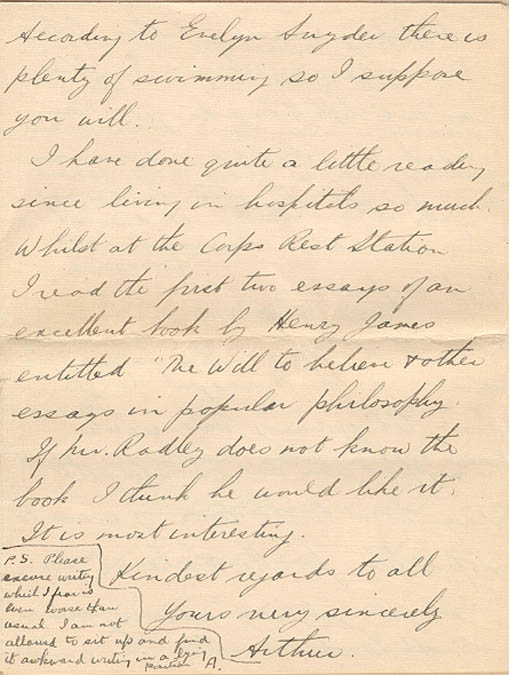 According to Evelyn Snyder there is
plenty of swimming so I suppose
you will.
I have done quite a little reading
since living in hospitals so much.
Whilst at the Corps Rest Station
I read the first two essays of an
excellent book by Henry James
entitled "The Will to believe & other
essays in popular philosophy.
If Mr. Radley does not know the
book I think he would like it.
It is most interesting.
Kindest regards to all
Yours very sincerely
Arthur.
P.S. Please
excuse writing
which I fear is
even worse than
usual I am not
allowed to sit up and find
it awkward writing in a lying
position A.